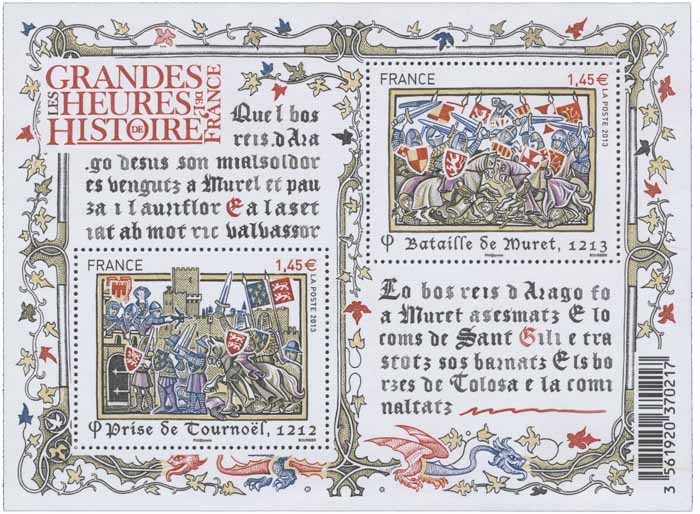 LES GRANDES
HEURES
DE L'HISTOIRE DE FRANCE
Que l bos
reis d Ara
go desus son mialsoldor
es vengutz a Murel et pau
za i l auriflor E a la set
iat ab mot ric valvassor
FRANCE 1,45€
LA POSTE 2013
φ Bataille de Muret, 1213
FRANCE 1,45€
LA POSTE 2013
φ Prise de Tournoël, 1212
Lo bos reis d Arago fo
a Muret asesmatz E lo
coms de Sant Gili e tra
stotz sos barnatz Els bo
rzes de Tolosa e la comi
naltatz
3 561920 370217